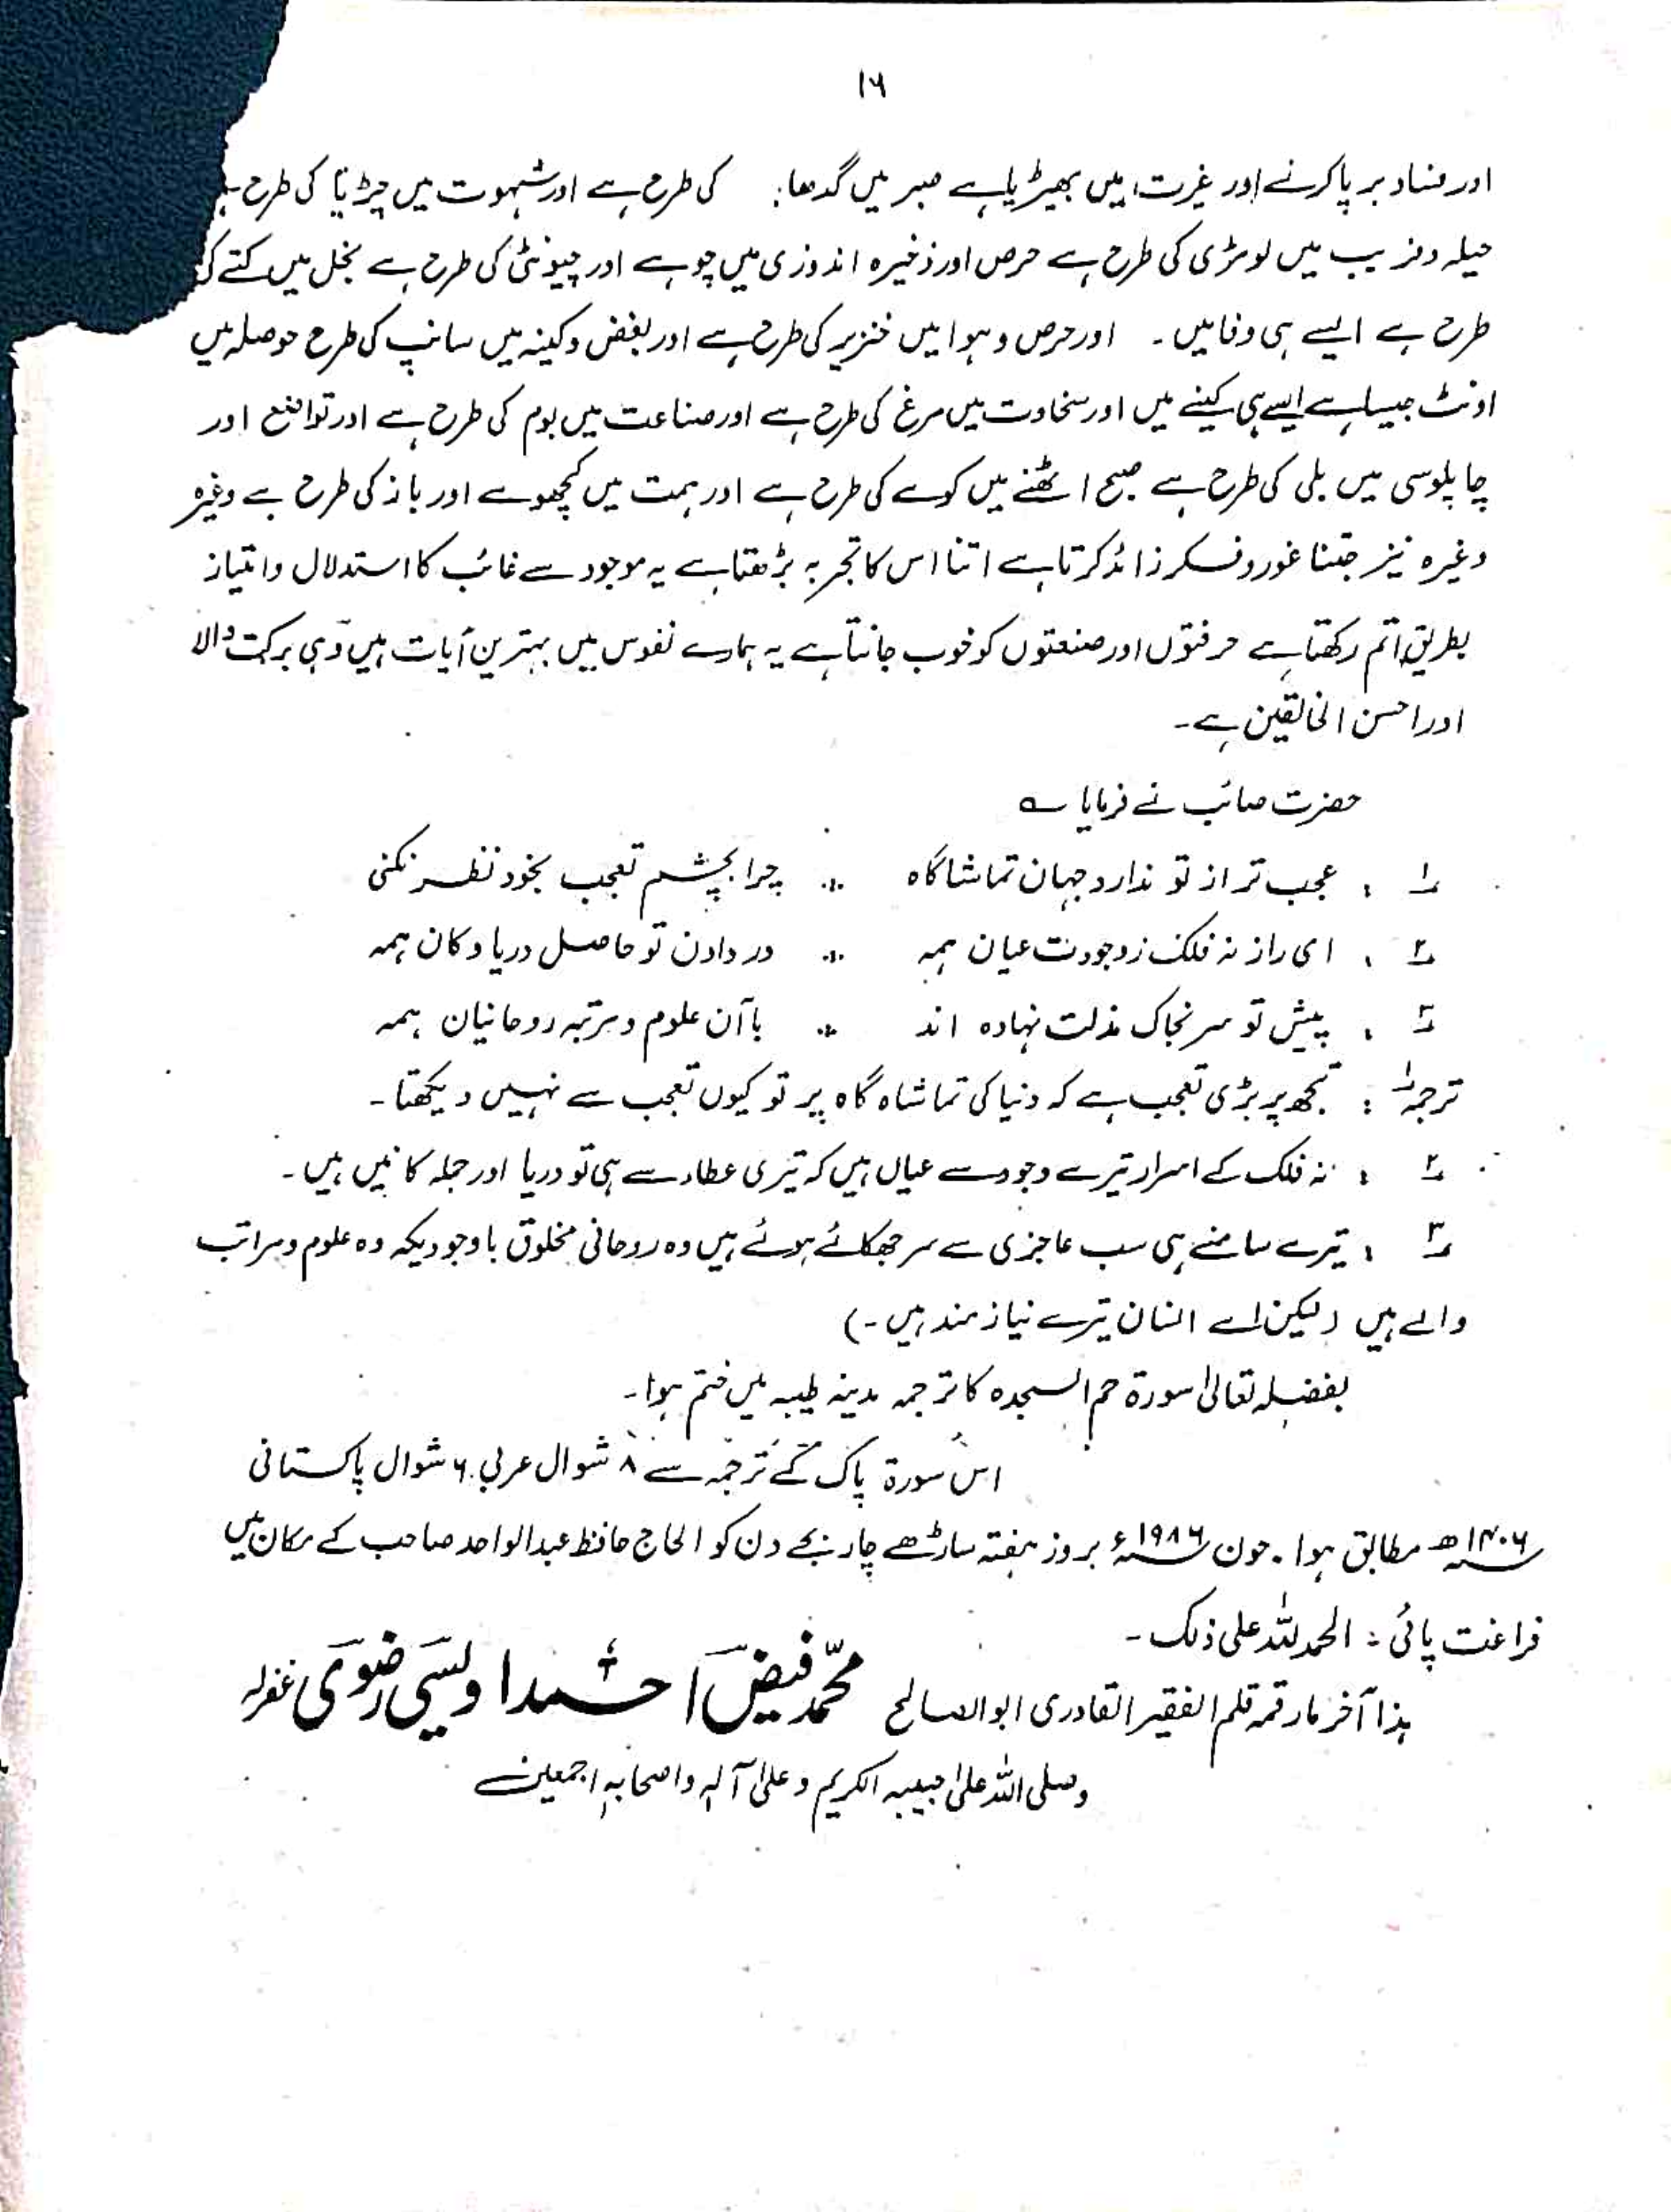 ۱۶
اور فساد برپا کرنے اور غیرت میں بھیڑیا ہے صبر میں گدھا۔ کی طرح ہے اور شہوت میں چڑیا کی طرح ہے
حیلہ و فریب میں لومڑی کی طرح ہے حرص اور ذخیرہ اندوزی میں چوہے اور چیونٹی کی طرح ہے بخل میں کتے کی
طرح ہے ایسے ہی وفا میں ۔ اور حرص و ہوا میں خنزیر کی طرح ہے اور بغض و کینہ میں سانپ کی طرح حوصلہ میں
اونٹ جیسا ہے ایسے ہی کینے میں اور سخاوت میں مرغ کی طرح ہے اور صناعت میں بوم کی طرح ہے اور تواضع اور
چاپلوسی میں بلی کی طرح ہے صبح اٹھنے میں کوے کی طرح ہے اور ہمت میں کچھوے اور باز کی طرح ہے وغیرہ
وغیرہ نیز جتنا غور و فسکر زائد کرتا ہے اتنا اس کا تجربہ بڑھتا ہے یہ موجود سے غائب کا استدلال و امتیاز
بطریق اتم رکھتا ہے حرفتوں اور صنعتوں کو خوب جانتا ہے یہ ہمارے نفوس میں بہترین آیات ہیں وہی برکت والا
اور احسن الخالقین ہے۔
حضرت صائب نے فرمایا ؎
۱ ؛ عجب تر از تو ندارد جہان تماشاگاہ ∴ چرا بچشم تعجب بخود نظر نکنی
۲ ، ای راز نہ فلک ز وجودت عیان ہمہ ∴ در دادن تو حاصل دریا و کان ہمہ
۳ ، پیش تو سر بخاک مذلت نہادہ اند ∴ با آن علوم و مرتبہ روحانیان ہمہ
ترجمہ ۱ : تجھ پر بڑی تعجب ہے کہ دنیا کی تماشاہ گاہ پر تو کیوں تعجب سے نہیں دیکھتا۔
۲ ؛ نہ فلک کے اسرار تیرے وجود سے عیاں ہیں کہ تیری عطاء سے ہی تو دریا اور جملہ کانیں ہیں ۔
۳ ؛ تیرے سامنے ہی سب عاجزی سے سر جھکائے ہوئے ہیں وہ روحانی مخلوق باوجودیکہ وہ علوم و مراتب
والے ہیں (لیکن اے انسان تیرے نیازمند ہیں ۔)
بفضلہ تعالیٰ سورۃ حم السجدہ کا ترجمہ مدینہ طیبہ میں ختم ہوا۔
اس سورۃ پاک کے ترجمہ سے ۸ شوال عربی ۶ شوال پاکستانی
۱۴۰۶ھ مطابق ہوا ۔ جون ۱۹۸۶ء بروز ہفتہ ساڑھے چار بجے دن کو الحاج حافظ عبدالواحد صاحب کے مکان میں
فراغت پائی : الحمد للہ علی ذلک ۔
ہذا آخر ما رقمہ قلم الفقیر القادری ابو الصالح محمّد فیض احمد اویسی رضوی غفرلہ
وصلی اللہ علیٰ حبیبہ الکریم وعلیٰ آلہ واصحابہ اجمعین